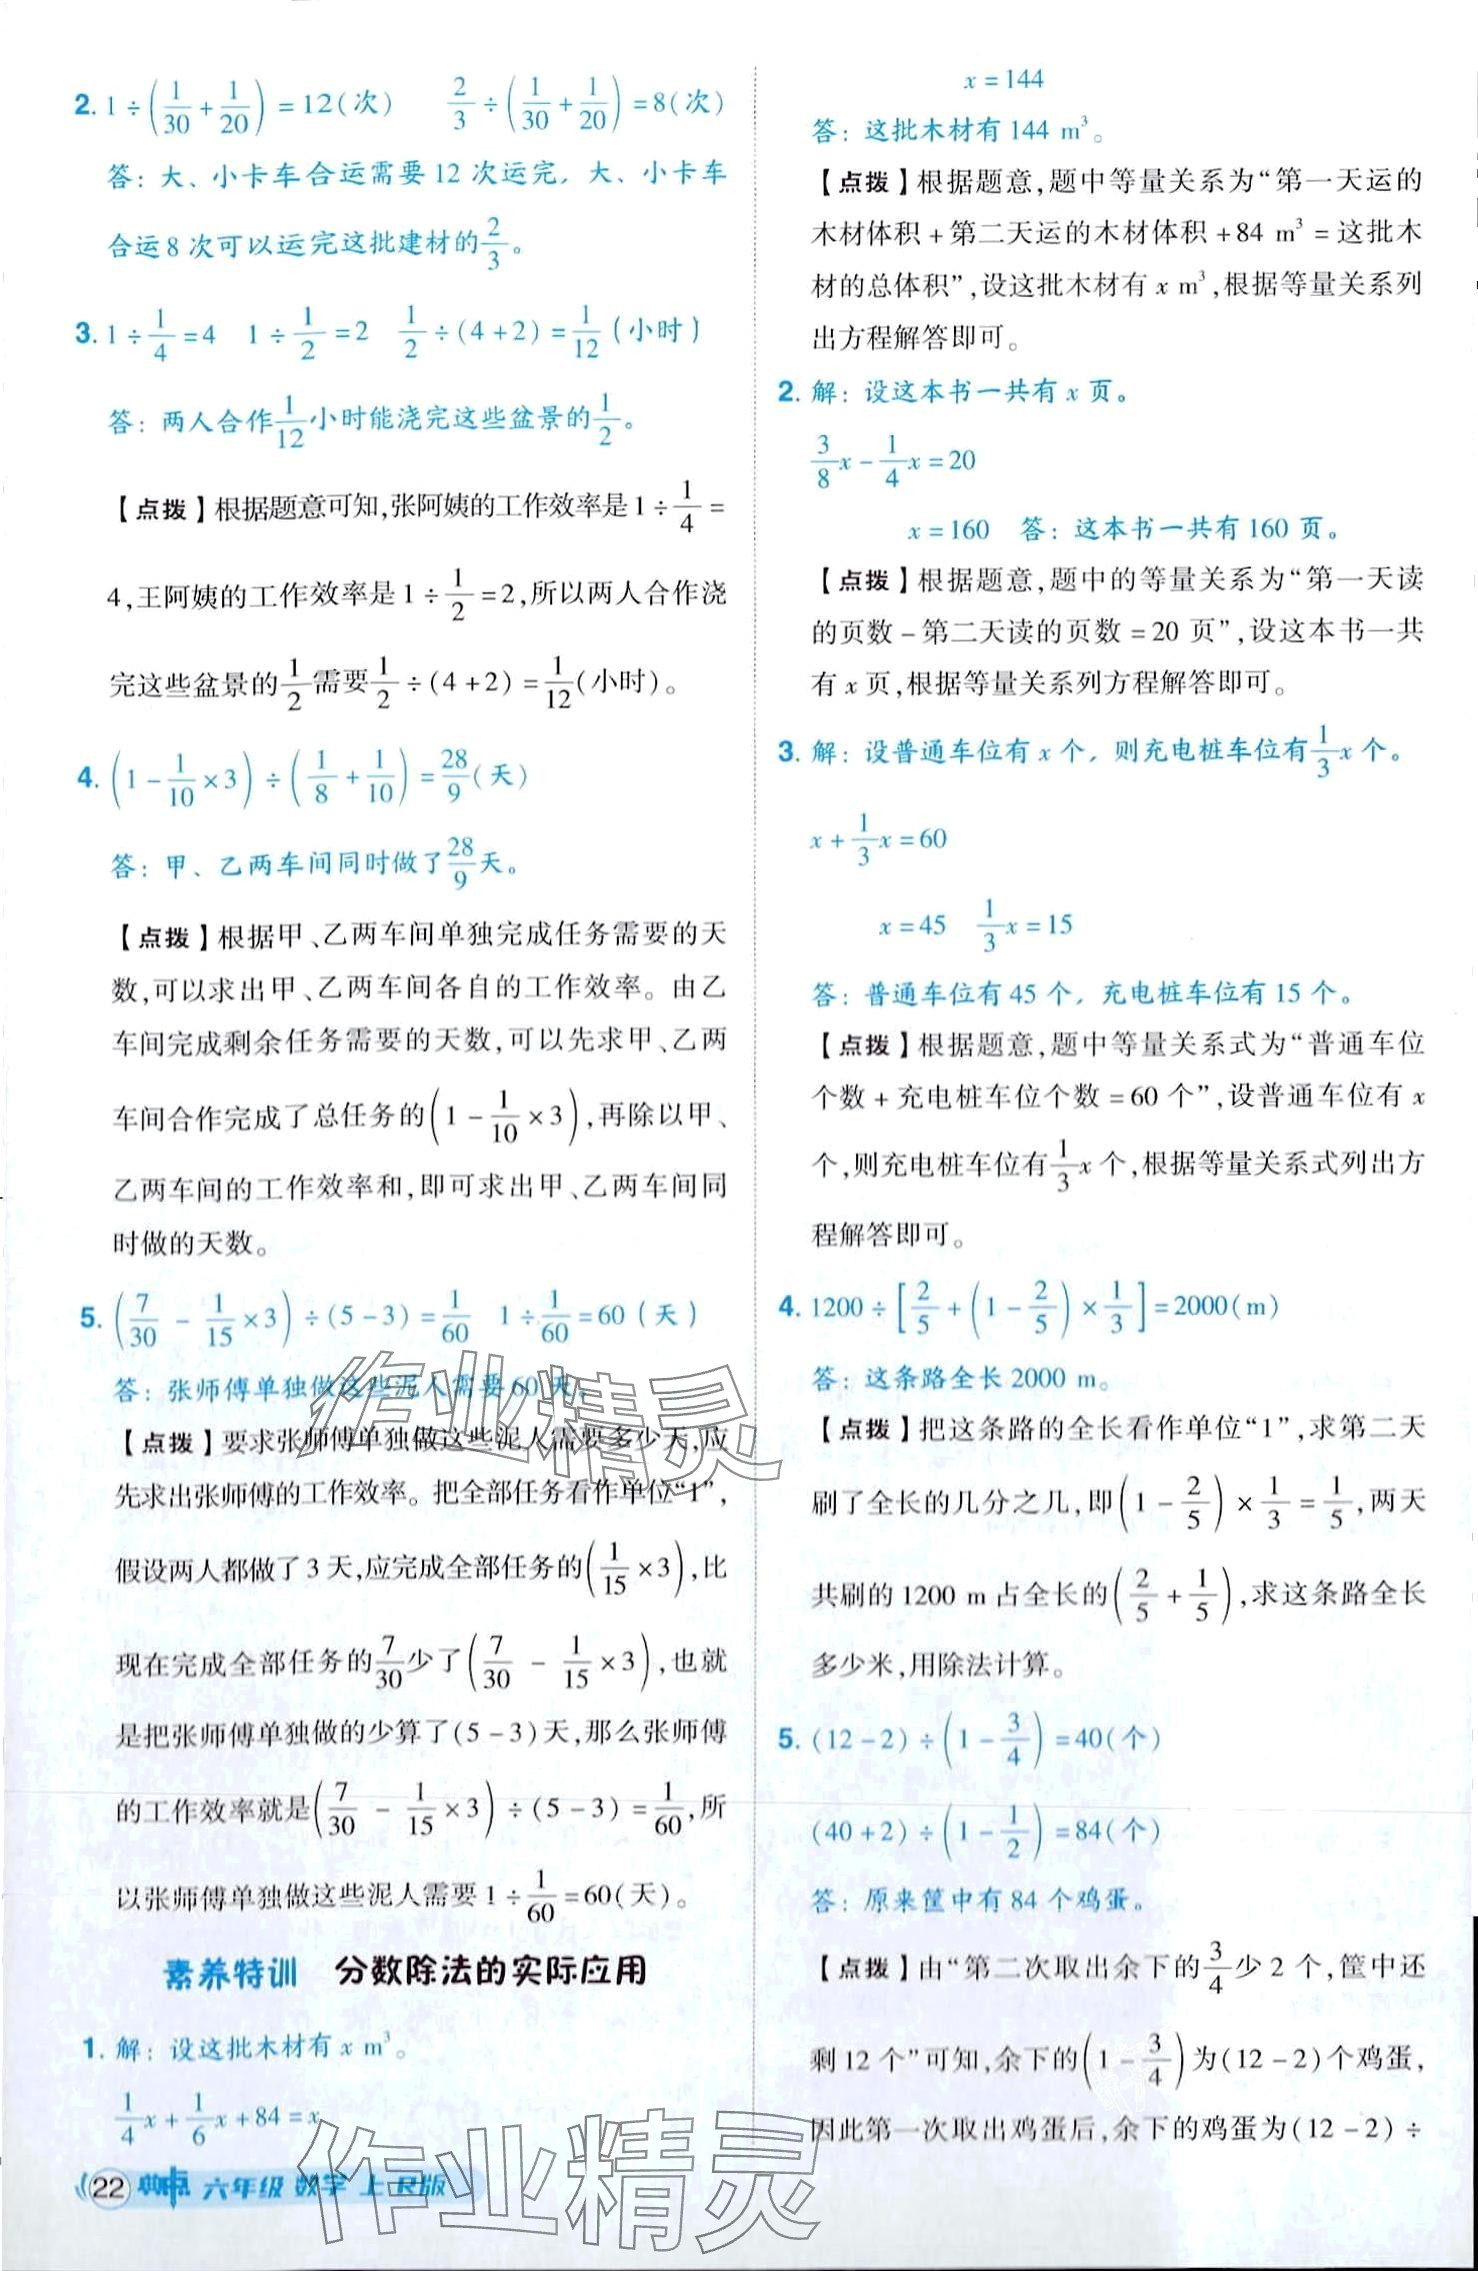 2. 1÷(1/30+1/20)=12(次)  2/3÷(1/30+1/20)=8(次)
答：大、小卡车合运需要12次运完，大、小卡车
合运8次可以运完这批建材的2/3。
3. 1÷1/4=4  1÷1/2=2  1/2÷(4+2)=1/12(小时)
答：两人合作1/12小时能浇完这些盆景的1/2。
【点拨】根据题意可知，张阿姨的工作效率是1÷1/4=
4，王阿姨的工作效率是1÷1/2=2，所以两人合作浇
完这些盆景的1/2需要1/2÷(4+2)=1/12(小时)。
4. (1-1/10×3)÷(1/8+1/10)=28/9(天)
答：甲、乙两车间同时做了28/9天。
【点拨】根据甲、乙两车间单独完成任务需要的天
数，可以求出甲、乙两车间各自的工作效率。由乙
车间完成剩余任务需要的天数，可以先求甲、乙两
车间合作完成了总任务的(1-1/10×3)，再除以甲、
乙两车间的工作效率和，即可求出甲、乙两车间同
时做的天数。
5. (7/30-1/15×3)÷(5-3)=1/60  1÷1/60=60(天)
答：张师傅单独做这些泥人需要60天。
【点拨】要求张师傅单独做这些泥人需要多少天，应
先求出张师傅的工作效率。把全部任务看作单位“1”，
假设两人都做了3天，应完成全部任务的(1/15×3)，比
现在完成全部任务的7/30少了(7/30-1/15×3)，也就
是把张师傅单独做的少算了(5-3)天，那么张师傅
的工作效率就是(7/30-1/15×3)÷(5-3)=1/60，所
以张师傅单独做这些泥人需要1÷1/60=60(天)。
素养特训 分数除法的实际应用
1. 解：设这批木材有x m³。
1/4x+1/6x+84=x
22 典中点 六年级 数学 上 R版
x=144
答：这批木材有144 m³。
【点拨】根据题意，题中等量关系为“第一天运的
木材体积+第二天运的木材体积+84 m³=这批木
材的总体积”，设这批木材有x m³，根据等量关系列
出方程解答即可。
2. 解：设这本书一共有x页。
3/8x-1/4x=20
x=160  答：这本书一共有160页。
【点拨】根据题意，题中的等量关系为“第一天读
的页数-第二天读的页数=20页”，设这本书一共
有x页，根据等量关系列方程解答即可。
3. 解：设普通车位有x个，则充电桩车位有1/3x个。
x+1/3x=60
x=45  1/3x=15
答：普通车位有45个，充电桩车位有15个。
【点拨】根据题意，题中等量关系式为“普通车位
个数+充电桩车位个数=60个”，设普通车位有x
个，则充电桩车位有1/3x个，根据等量关系式列出方
程解答即可。
4. 1200÷[2/5+(1-2/5)×1/3]=2000(m)
答：这条路全长2000 m。
【点拨】把这条路的全长看作单位“1”，求第二天
刷了全长的几分之几，即(1-2/5)×1/3=1/5，两天
共刷的1200 m占全长的(2/5+1/5)，求这条路全长
多少米，用除法计算。
5. (12-2)÷(1-3/4)=40(个)
(40+2)÷(1-1/2)=84(个)
答：原来筐中有84个鸡蛋。
【点拨】由“第二次取出余下的3/4少2个，筐中还
剩12个”可知，余下的(1-3/4)为(12-2)个鸡蛋，
因此第一次取出鸡蛋后，余下的鸡蛋为(12-2)÷
作业精灵
作业精灵